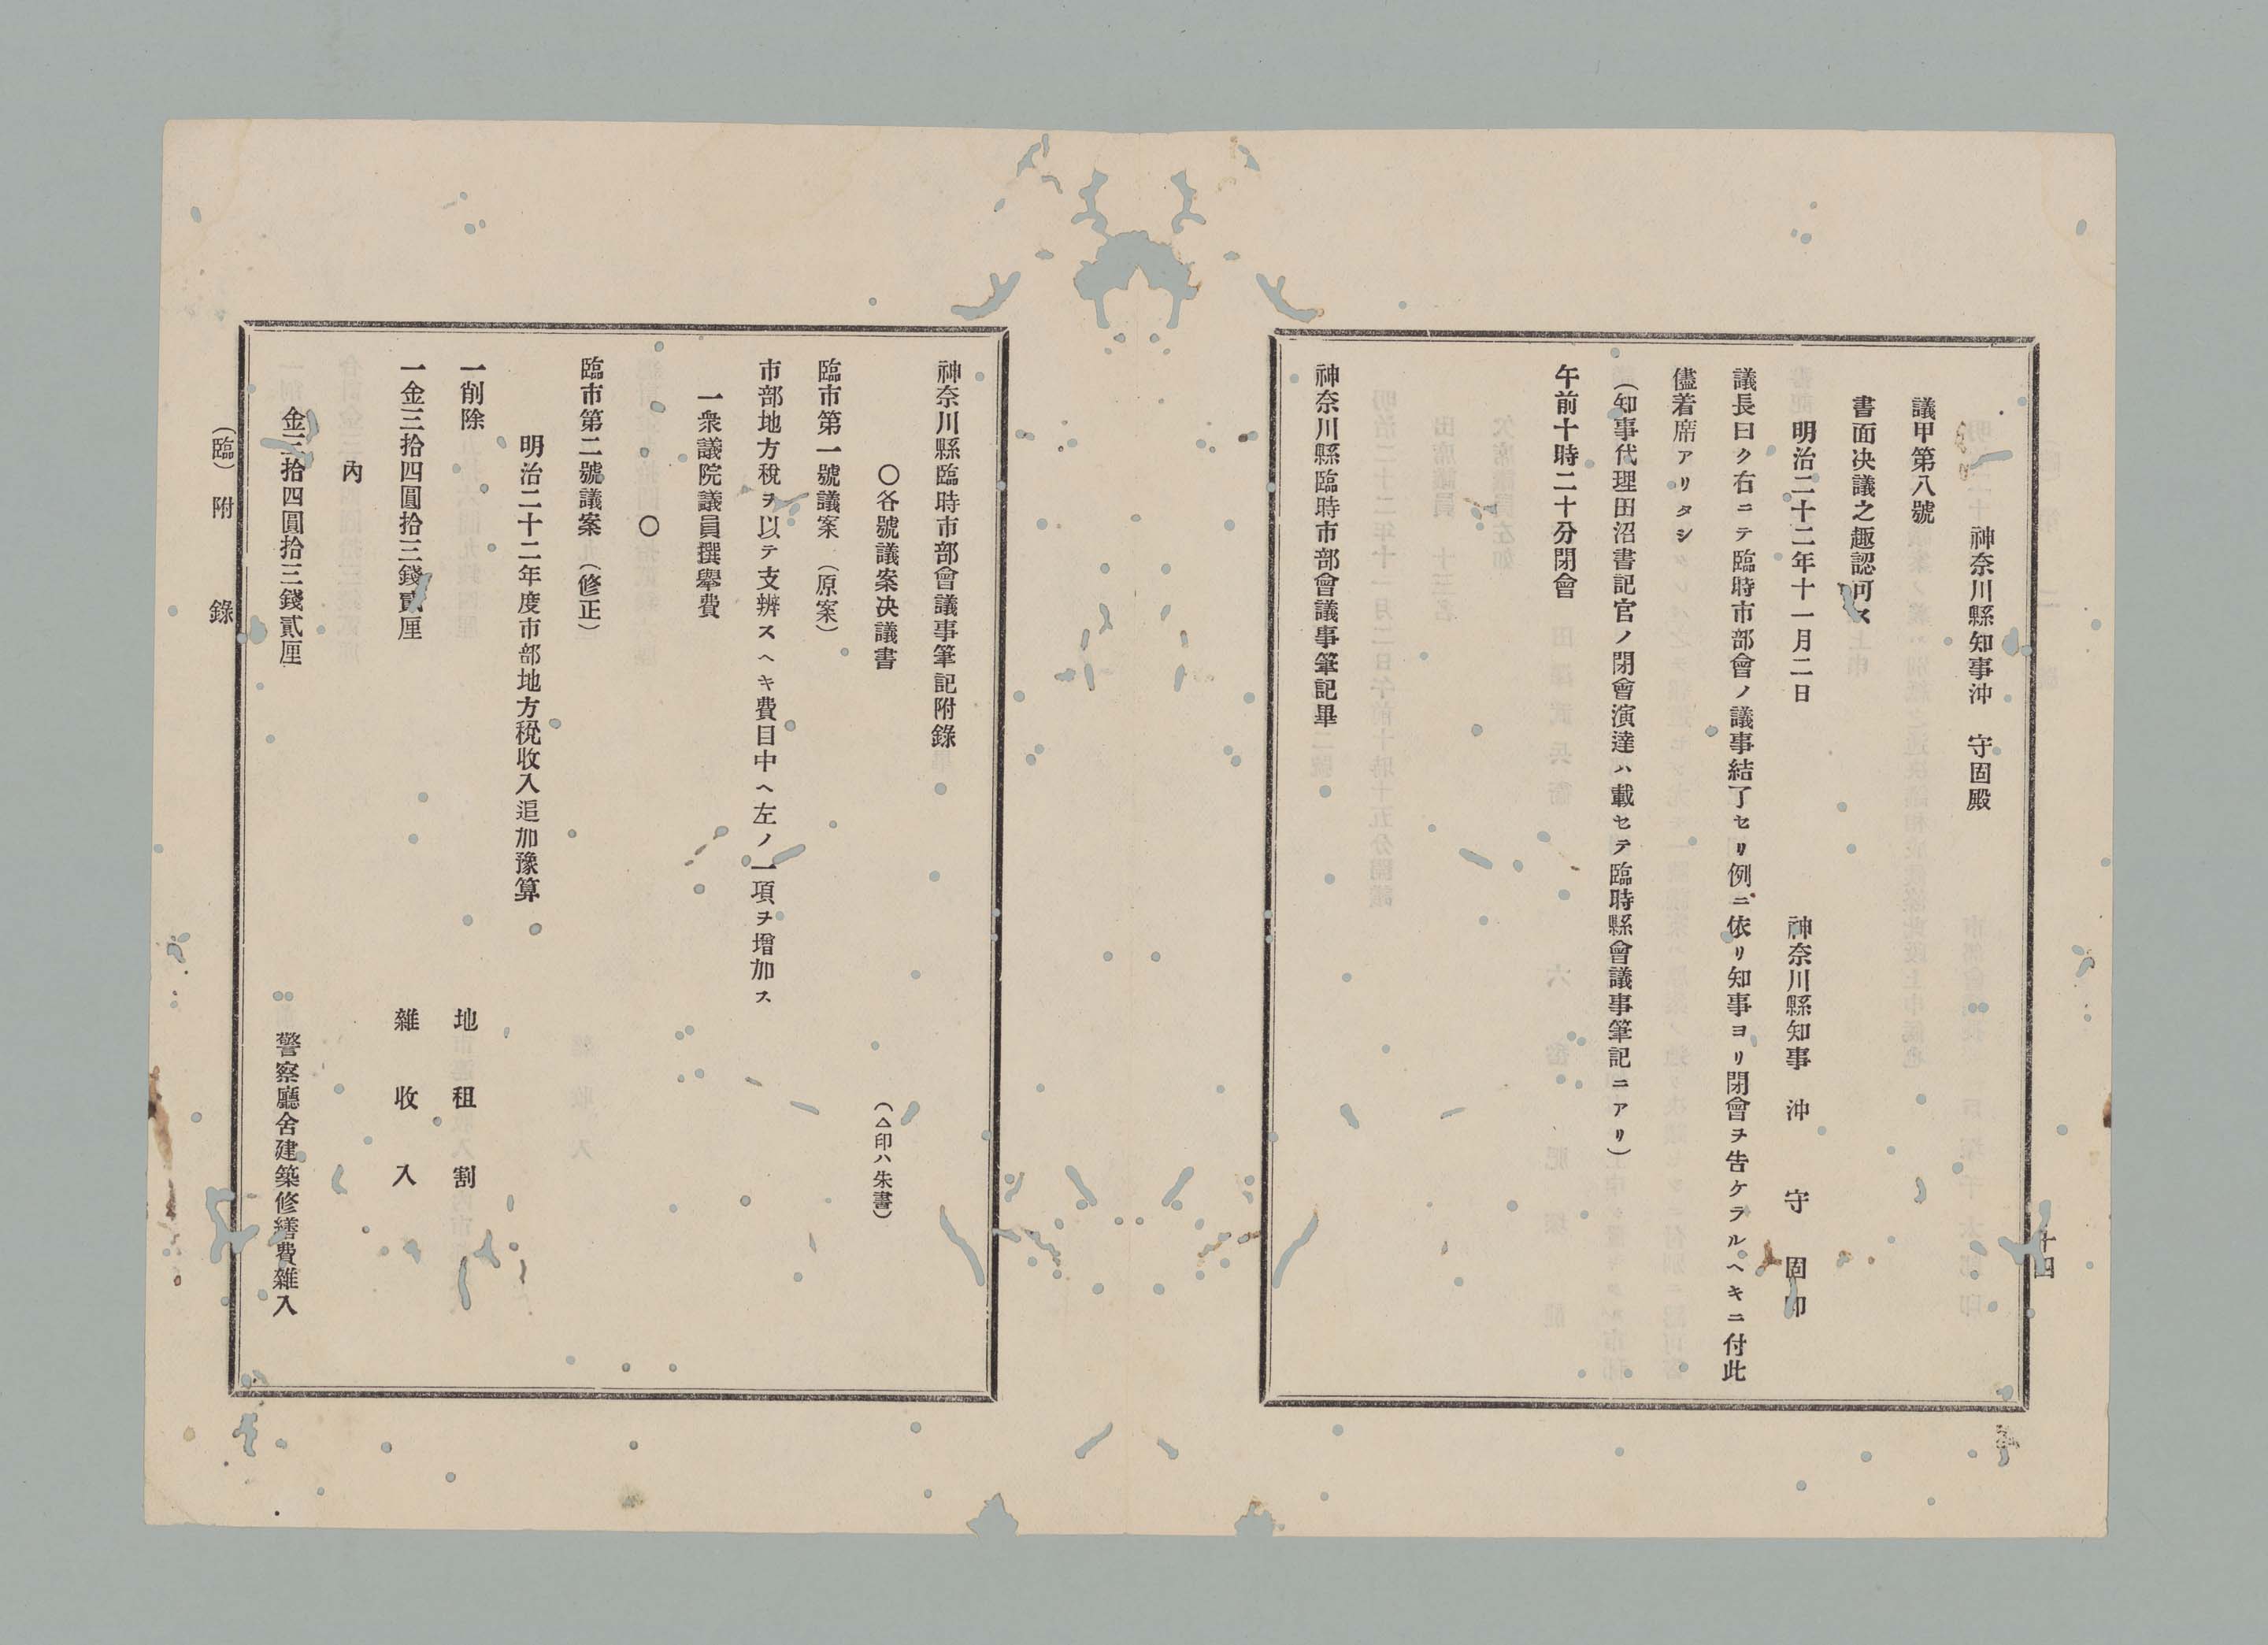 神奈川縣知事沖　守固殿
議甲第八號
書面决議之趣認可ス
明治二十二年十一月二日
神奈川縣知事　沖　守固印
議長曰ク右ニテ臨時市部會ノ議事結了セリ例ニ依リ知事ヨリ閉會ヲ告ケラルヘキニ付此
儘着席アリタシ
（知事代理田沼書記官ノ閉會演達ハ載セテ臨時縣會議事筆記ニアリ）
午前十時二十分閉會
神奈川縣臨時市部會議事筆記畢
十四
神奈川縣臨時市部會議事筆記附錄
〇各號議案决議書
（△印ハ朱書）
臨市第一號議案（原案）
市部地方稅ヲ以テ支辨スヘキ費目中ヘ左ノ一項ヲ增加ス
一衆議院議員撰擧費
〇
臨市第二號議案（修正）
明治二十二年度市部地方稅收入追加豫算
一削除　地租割
一金三拾四圓拾三錢貳厘　雜收入
內
金三拾四圓拾三錢貳厘　警察廳舍建築修繕費雜入
（臨）附錄